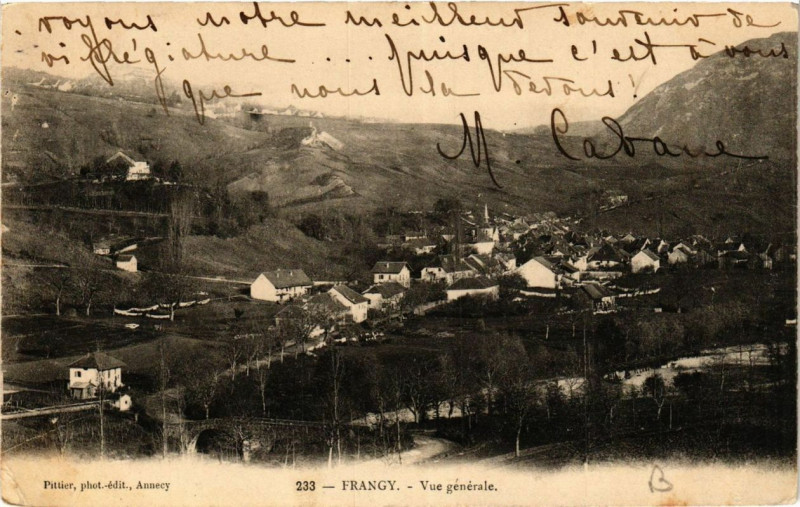 . voyons notre meilleur souvenir de
villégiature .... puisque c'est à vous
que nous la devons!
M. Cabane
Pittier, phot.-édit., Annecy
233 — FRANGY. - Vue générale.
B